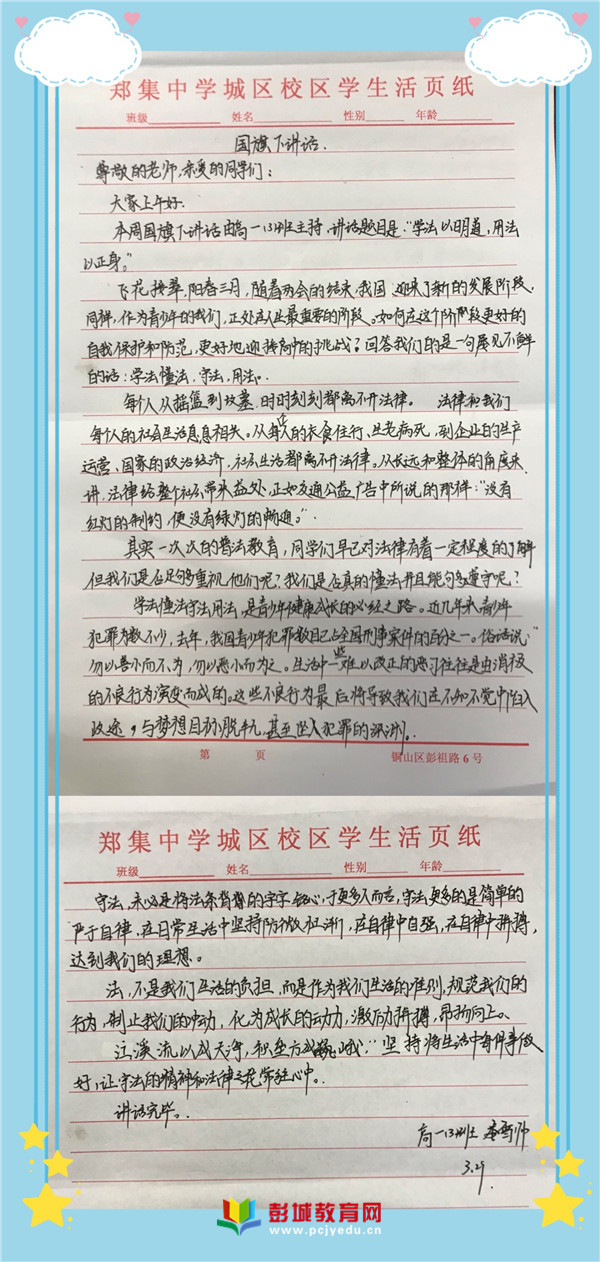 郑集中学城区校区学生活页纸
班级 姓名 性别 年龄
国旗下讲话.
尊敬的老师,亲爱的同学们:
大家上午好.
本周国旗下讲话由高一13班主持,讲话题目是:“学法以明道,用法
以正身。”
飞花接翠,阳春三月,随着两会的结束,我国 迎来了新的发展阶段,
同样,作为青少年的我们,正处在人生最重要的阶段。如何在这个阶段更好的
自我保护和防范,更好地迎接高中的挑战?回答我们的是一句屡见不鲜
的话:学法懂法,守法,用法。
每个人从摇篮到坟墓,时时刻刻都离不开法律。 法律和我们
每个人的社会生活息息相关。从每个人的衣食住行,生老病死,到企业的生产
运营、国家的政治经济,社会生活都离不开法律。从长远和整体的角度来
讲,法律给整个社会带来益处,正如交通公益广告中所说的那样:“没有
红灯的制约,便没有绿灯的畅通。”
其实一次次的普法教育,同学们早已对法律有着一定程度的了解
但我们是否足够重视他们呢?我们是否真的懂法并且能够遵守呢?
学法懂法守法用法,是青少年健康成长的必经之路。近几年来,青少年
犯罪为数不少,去年,我国青少年犯罪数目已占全国刑事案件的百分之一。俗话说:“
勿以善小而不为,勿以恶小而为之。生活中一些难以改正的恶习往往是由消极
的不良行为演变而成的。这些不良行为最后将导致我们在不知不觉中陷入
歧途,与梦想目标脱轨,甚至坠入犯罪的深渊。
第 页 铜山区彭祖路6号
郑集中学城区校区学生活页纸
班级 姓名 性别 年龄
守法,未必是将法条背的字字铭心,于更多人而言,守法更多的是简单的
严于自律,在日常生活中坚持防微杜渐,在自律中自强,在自律中拼搏,
达到我们的理想。
法,不是我们生活的负担,而是作为我们生活的准则,规范我们的
行为,制止我们的冲动,化为成长的动力,激励拼搏,昂扬向上。
江溪流以成大海,积垒方成巍峨,”坚持将生活中每件事做
好,让守法的精神和法律之花常驻心中。
讲话完毕。
高一13班
3.29
彭城教育网
www.pcjyedu.cn